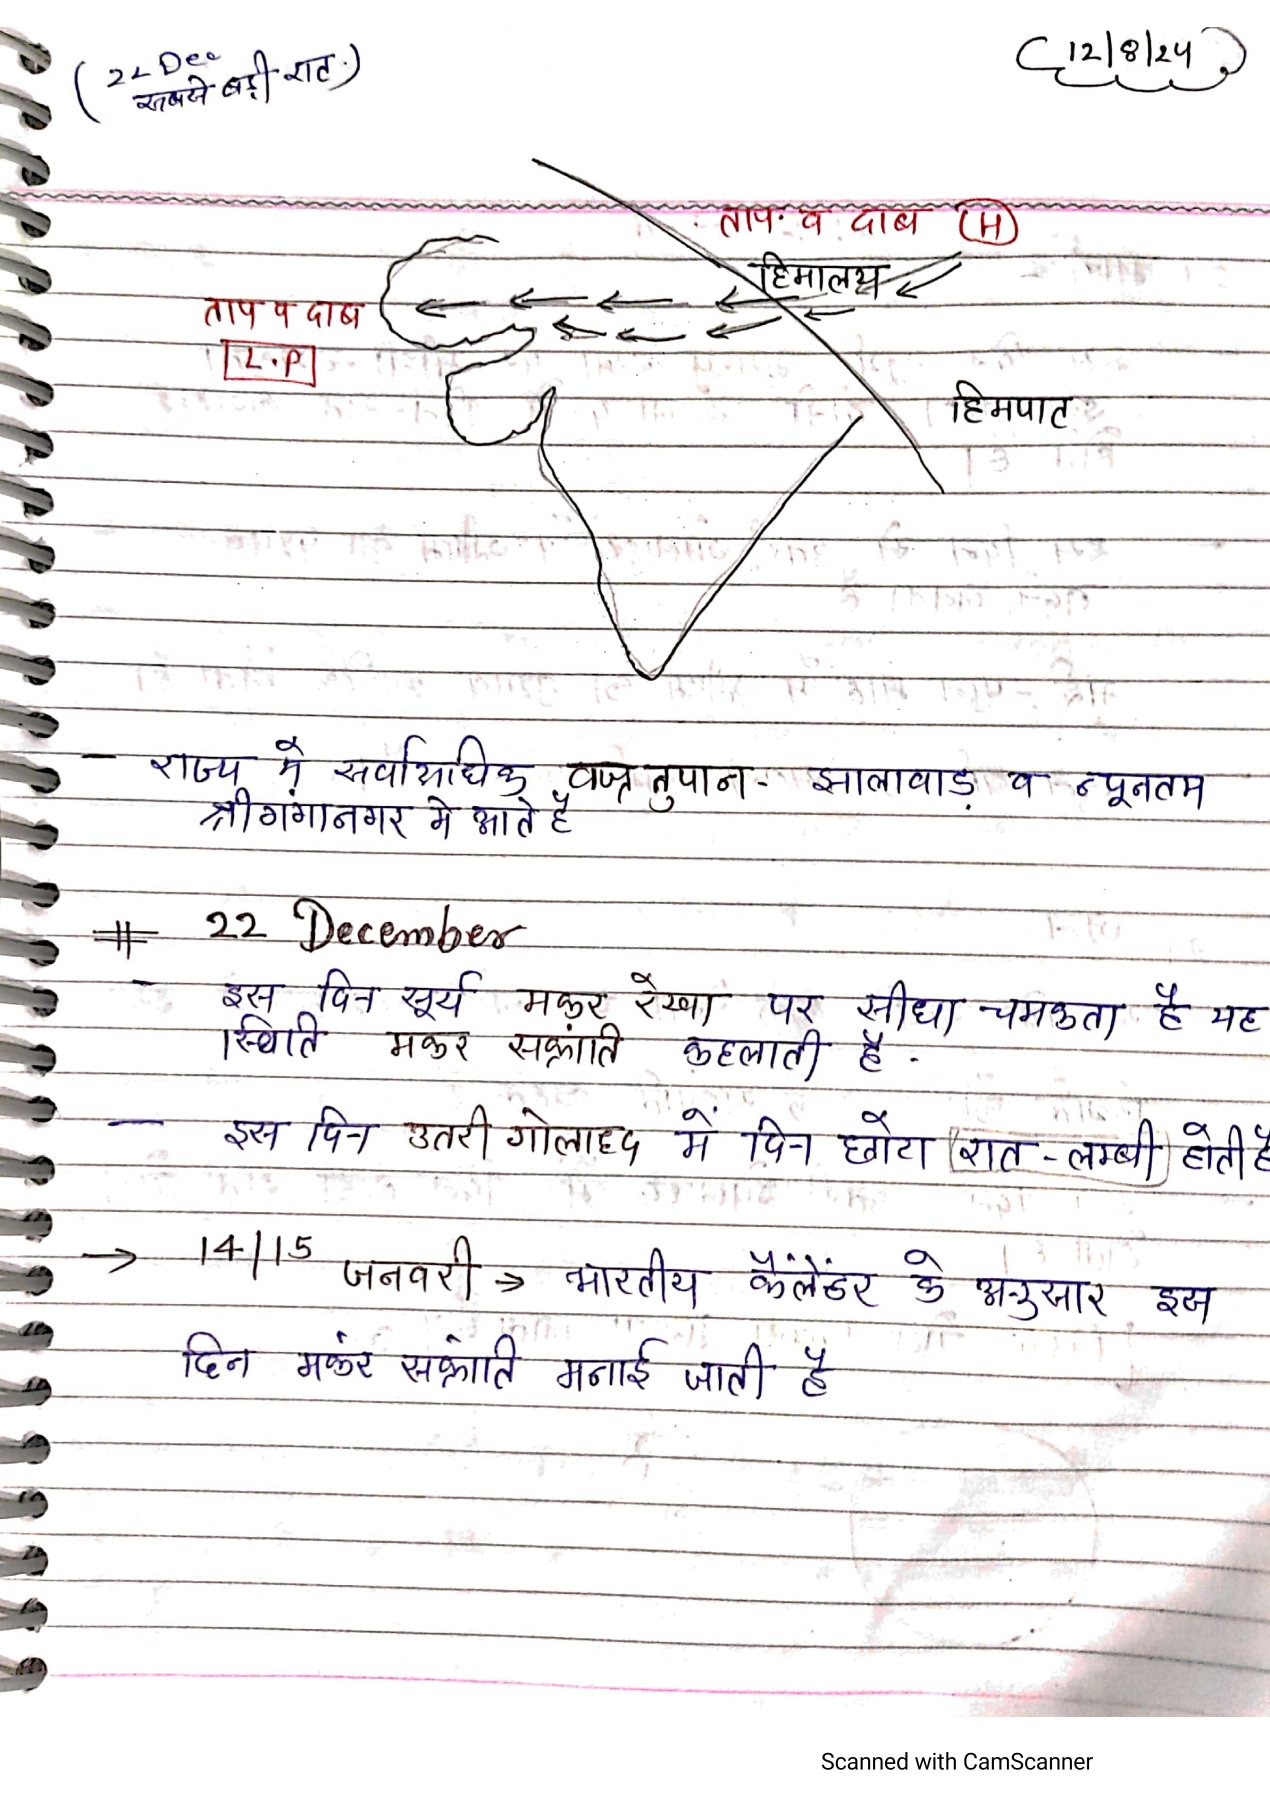 (22 Dec
सबसे बड़ी रात.)
12/8/24
ताप व दाब (H)
हिमालय
ताप व दाब
L.P
हिमपात
- राज्य में सर्वाअधिक वज्र तुपान - झालावाड़ व न्यूनतम
श्रीगंगानगर मे आते है
# 22 December
- इस दिन सूर्य मकर रेखा पर सीधा चमकता है यह
स्थिति मकर सक्रांति कहलाती है.
- इस दिन उतरी गोलाद्द में दिन छोटा रात - लम्बी होती है
→ 14/15 जनवरी → भारतीय कैलेंडर के अनुसार इस
दिन मकर सक्रांति मनाई जाती है
Scanned with CamScanner